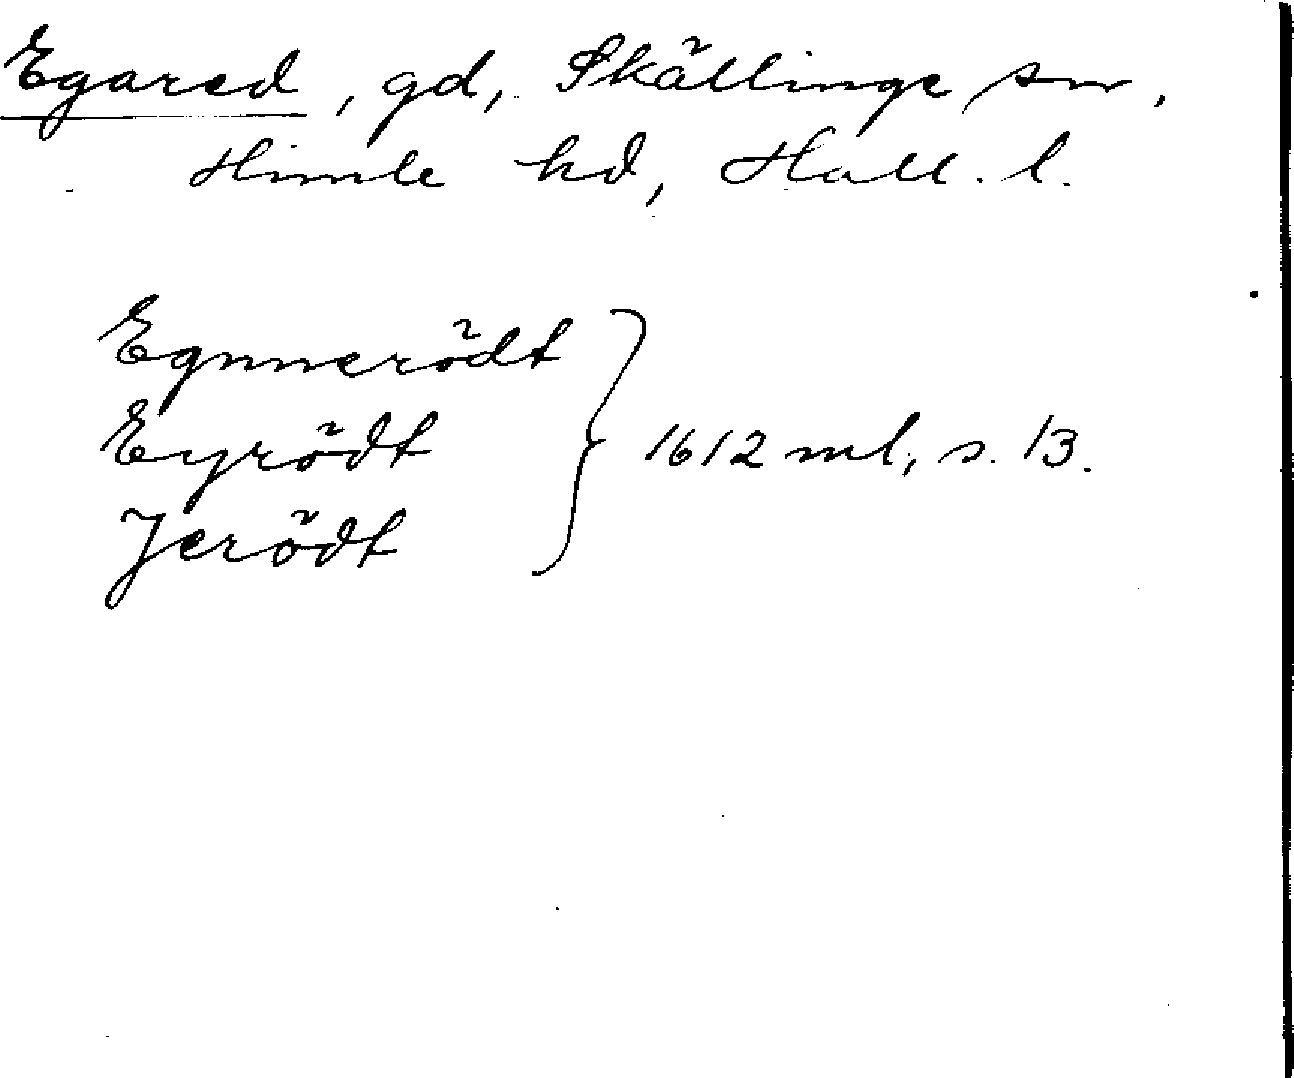 Egared, gd, Skällinge sn,
Himle hd, Hall. l.
Egnnerödt
Eyrödt } 1612 ml, s. 13.
Jerödt